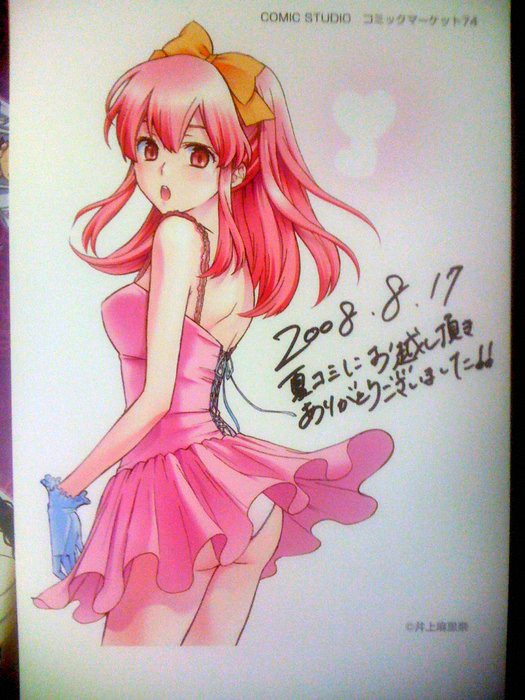 COMIC STUDIO コミックマーケット74
2008.8.17
夏コミにお越し頂き
ありがとうございました!!
©井上麻里奈